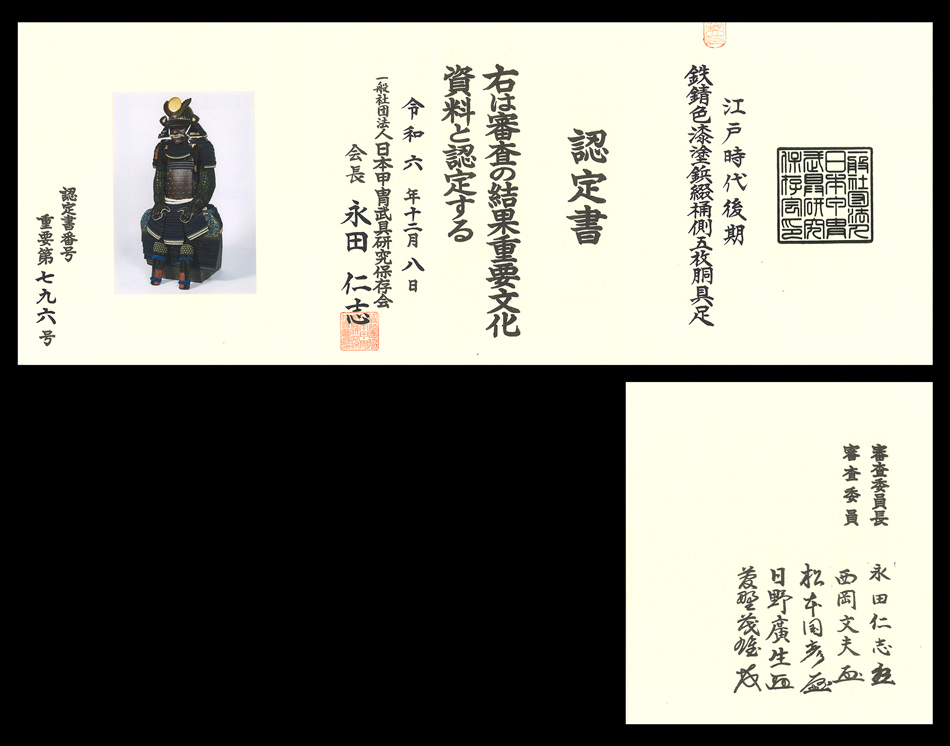 一般社団法人
日本甲冑
武具研究
保存会印
江戸時代後期
鉄錆色漆塗鋲綴桶側五枚胴具足
認定書
右は審査の結果重要文化
資料と認定する
令和六年十二月八日
一般社団法人日本甲冑武具研究保存会
会長 永田仁志
認定書番号
重要第七九六号
審査委員長 永田仁志
審査委員 西岡文夫
松本国彦
日野廣生